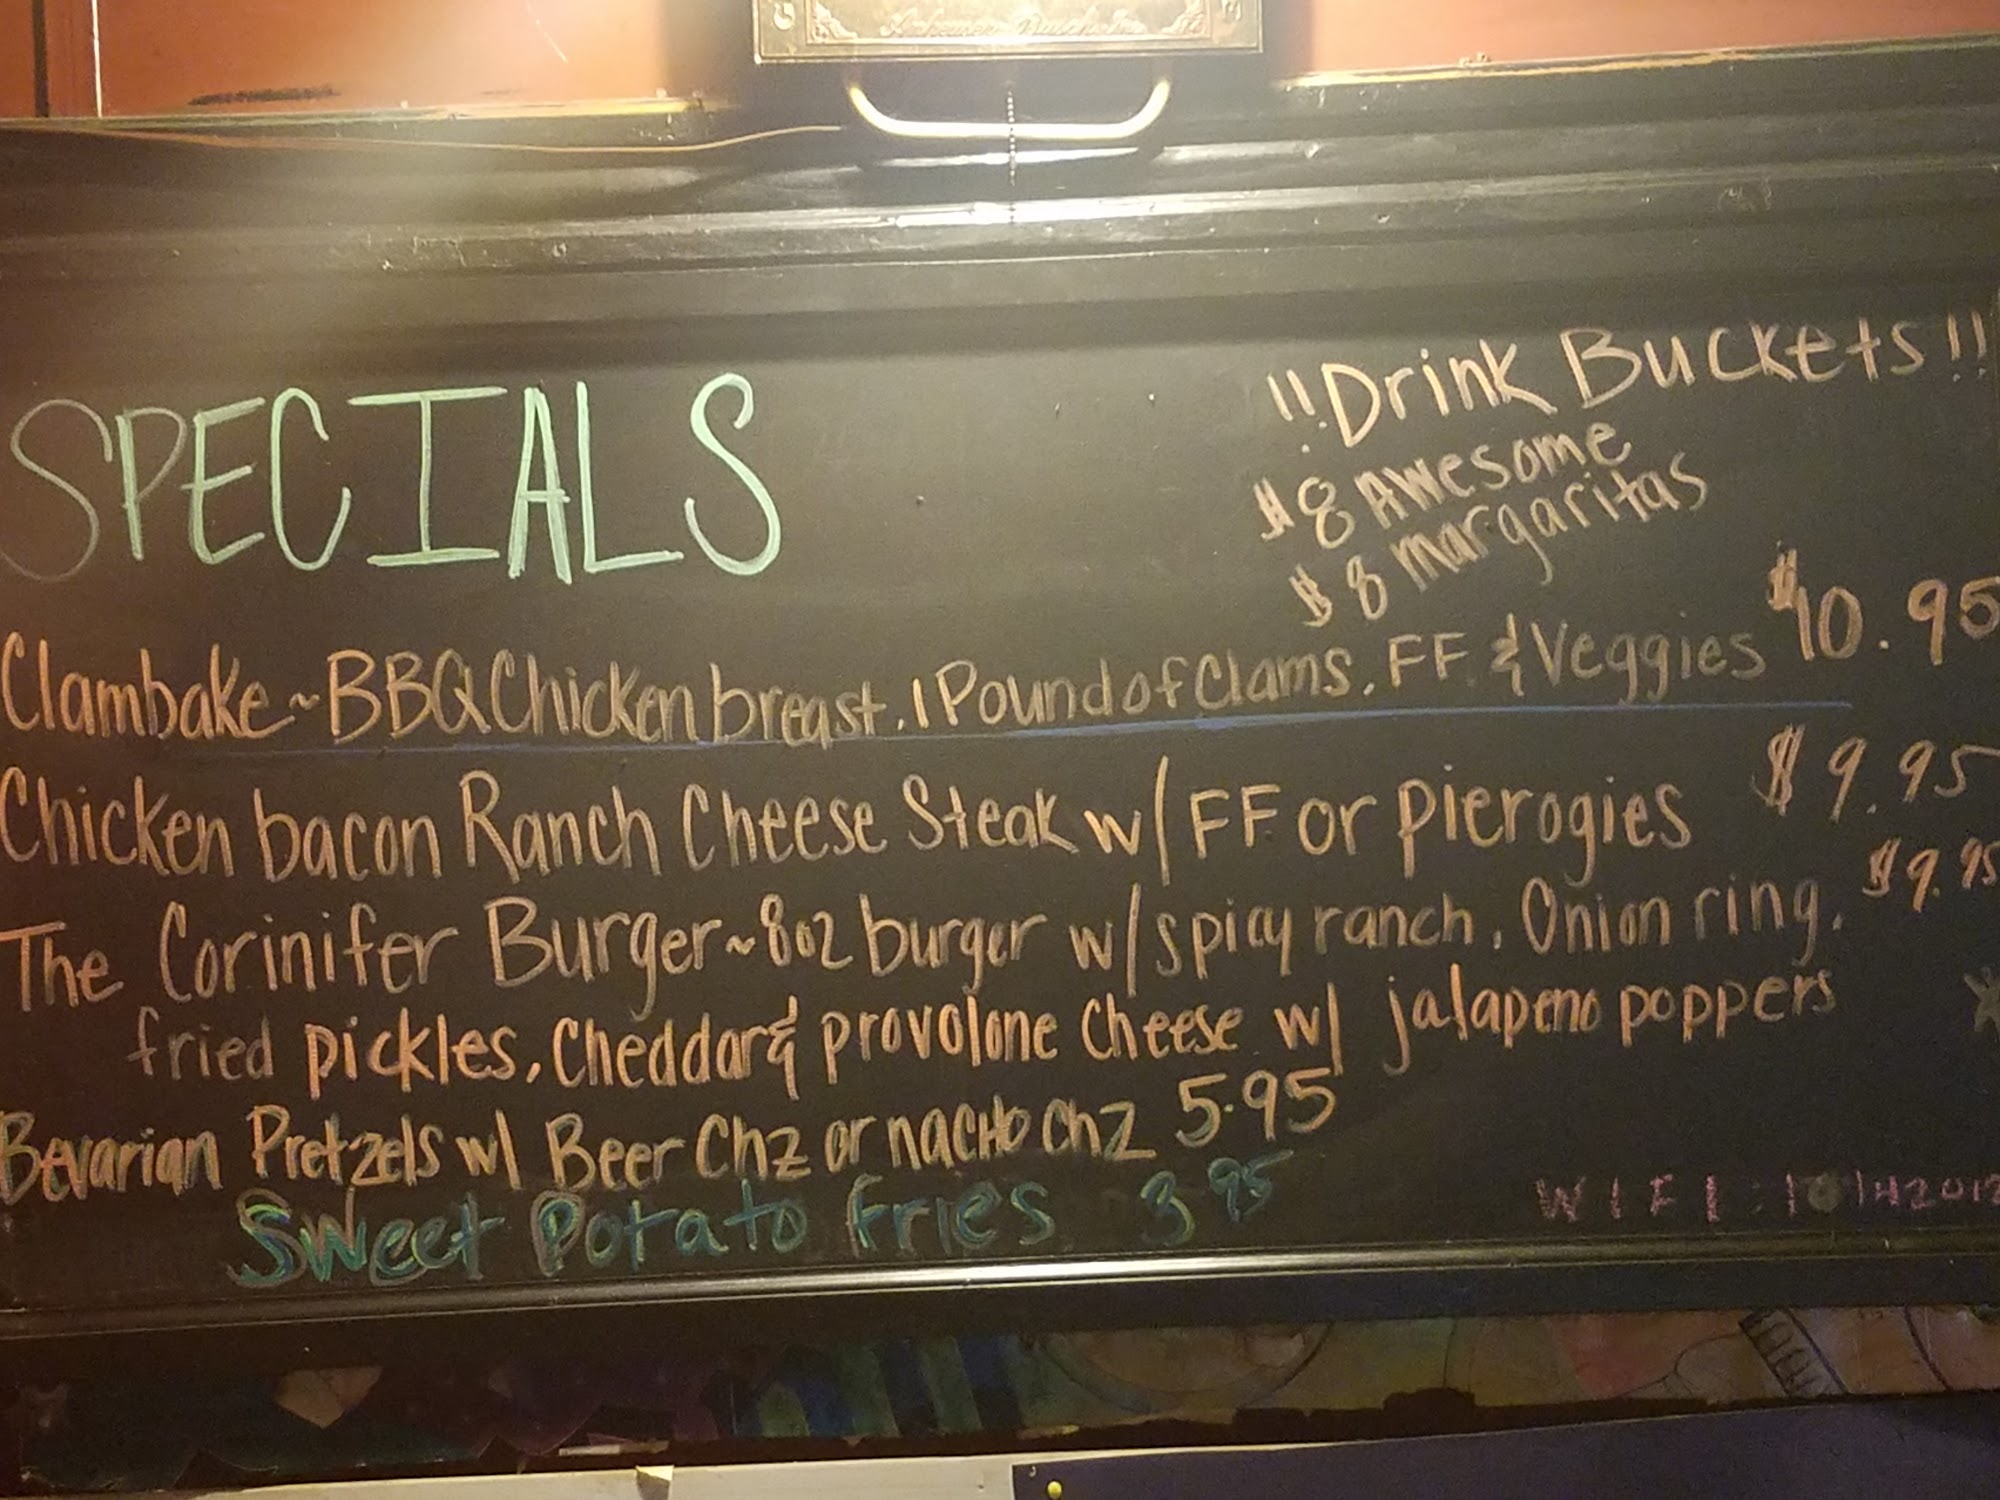 Anheuser-Busch, Inc.
SPECIALS
!!Drink Buckets!!
$8 Awesome
$8 margaritas
Clambake~BBQ Chicken breast, 1 Pound of Clams, FF & Veggies $10.95
Chicken bacon Ranch Cheese Steak w/ FF or Pierogies $9.95
The Corinifer Burger~8oz burger w/ spicy ranch, Onion ring, $9.95
fried pickles, Cheddar & provolone Cheese w/ jalapeno poppers
Bevarian Pretzels w/ Beer Chz or nacho chz 5.95
Sweet Potato fries 3.95
WIFI: